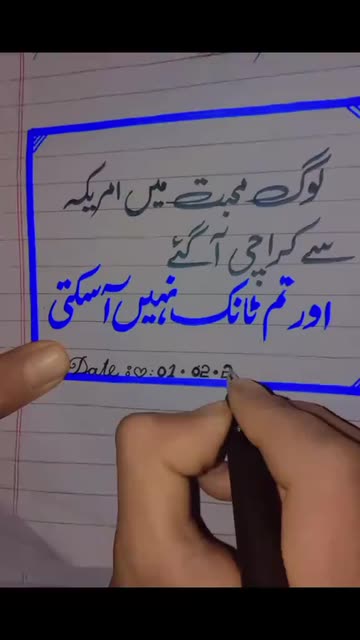 لوگ محبت میں امریکہ
سے کراچی آ گئے
اور تم ٹانک نہیں آ سکتی
Date :♡: 01・02・2